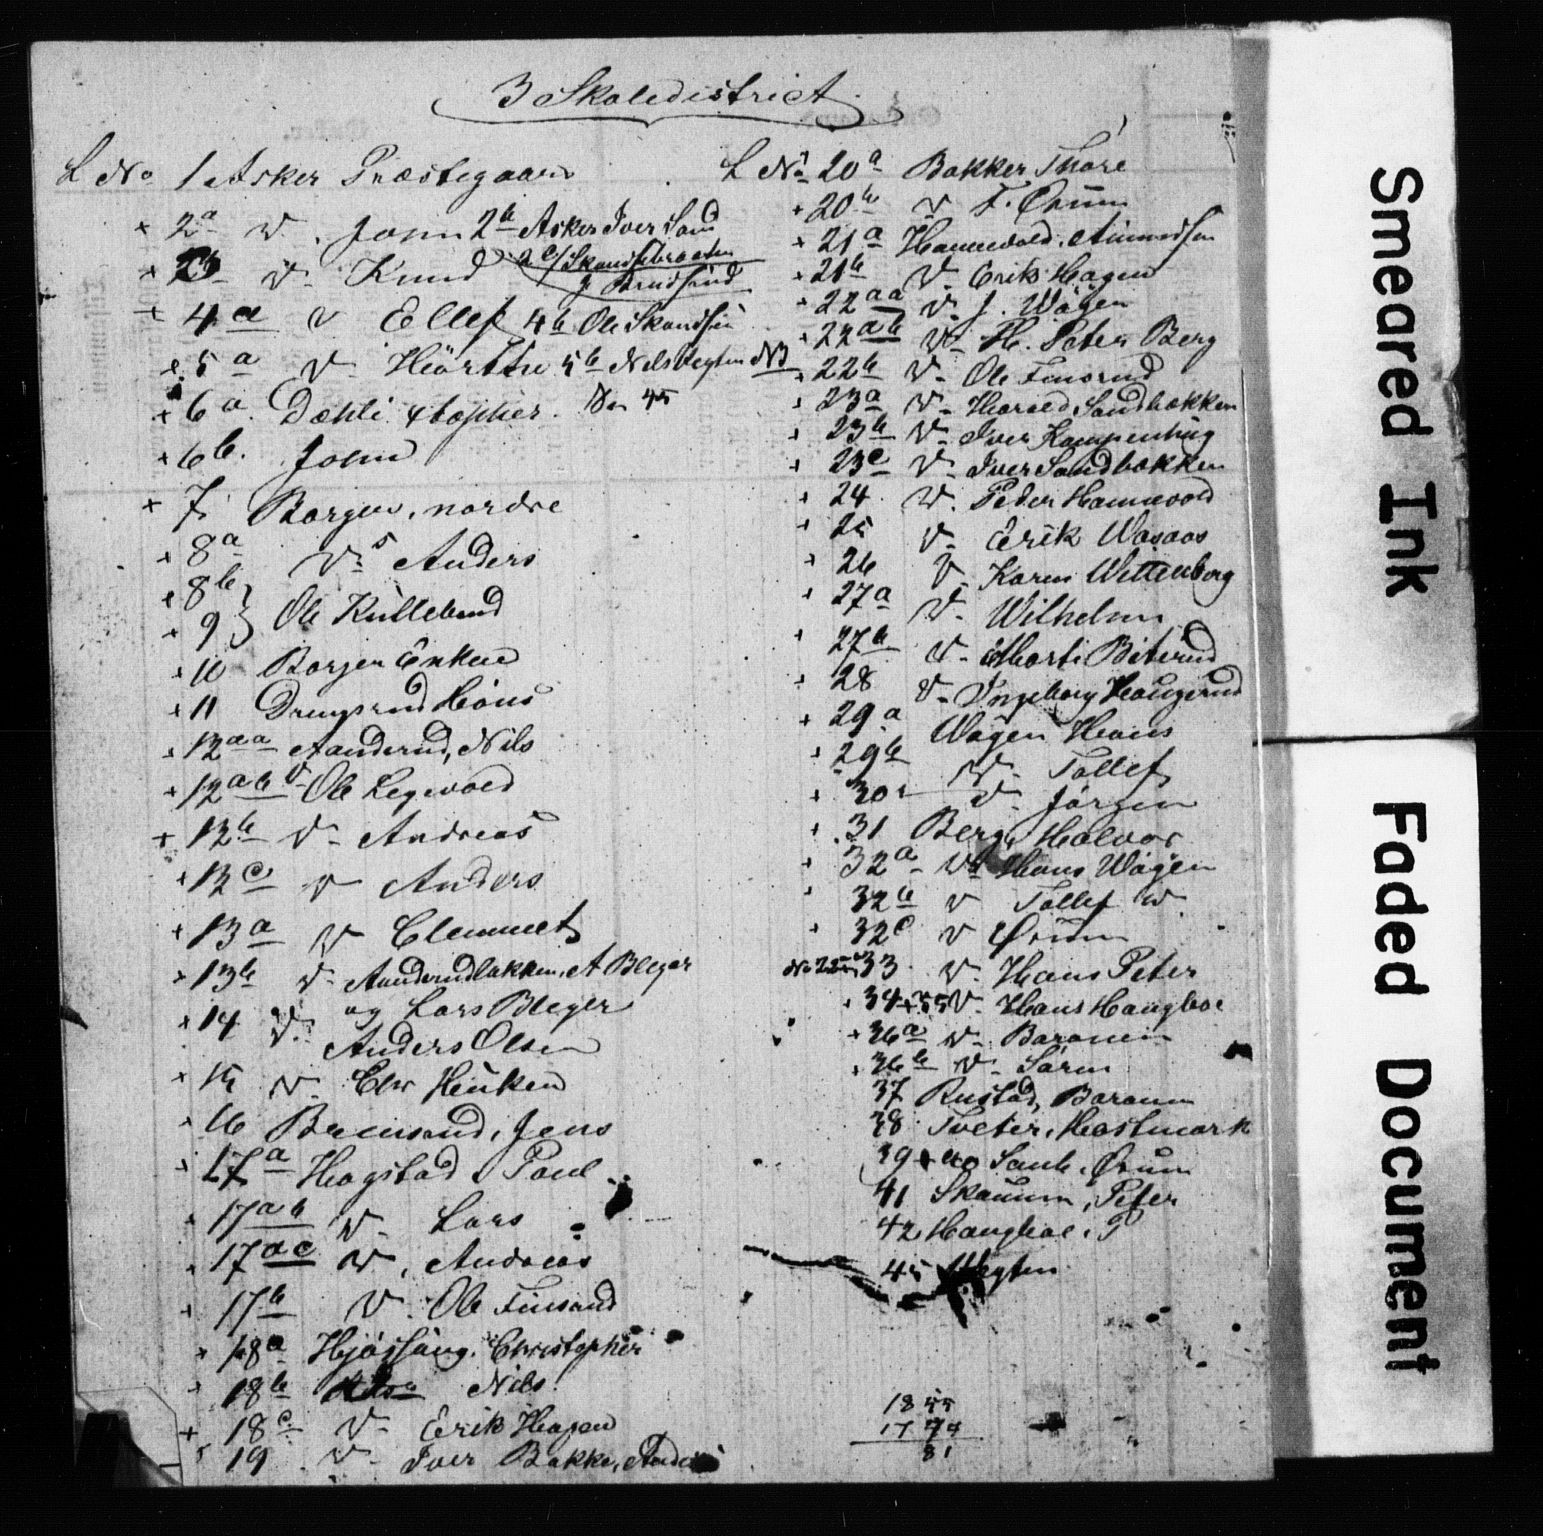 3 Skoledistrict
L No 1 Asker Præstegaard
+ 2a v. John 2b Asker Iver Lund
+ v. Knud 2c/ Skoudsebraaten
+ 4a v Ellef 4b Ole Skoudsen
5a v. 5b Nils NB
+ 6a. Dæhli No 45
+ 6b. John
+ 7 Borgen, nordre
+ 8a v. s Anders
+ 8b } Ole Kullebund
+ 9
+ 10 Borgen Enken
+ 11 Drengsrud Hans
+ 12aa Aanderud, Nils
+ 12ab v. Ole Legevold
+ 12b v. Andreas
+ 12c v Anders
+ 13a v Clemmet
+ 13b v. Aanderudbakken, A Bleger
og Lars Bleger
+ 14 v. Anders Olsen
+ 15 v. Elw Heuken
+ 16 Bremsrud, Jens
+ 17a Hogstad, Poul
+ 17ab v. Lars
+ 17ac v. Andreas
+ 17b v. Ole Finsrud
+ 18a Christopher
+ 18b Nils
+ 18c v. Erik Hagen
+ 19 v. Iver Bakke,
L No 20a Bakker Thore
+ 20b v F. Ørum
+ 21a Hannevold, Amundsen
+ 21b v. Erik Hagen
+ 22aa v. J. Wøyen
+ 22ab v. H. Peter Berg
+ 22b v. Ole Finsrud
+ 23a v. Harald Sandbakken
+ 23b v. Iver Kampenhug
+ 23c v. Iver Sandbakken
+ 24 v. Peder Hannevold
+ 25 v. Erik Wasaas
+ 26 v Karen Wettenberg
+ 27a v. Wilhelm
+ 27b v. Marti Biterud
+ 28 v. Ingeborg Haugerud
+ 29a Wøyen Hans
+ 29b v. Tollef
+ 30 v. Jørgen
+ 31 Berg, Halvor
+ 32a v. Hans Wøyen
32b v Tollef W.
+ 32c v Ørum
33 v. Hans Peter
+ 34 + 35 v. Hans Hangboe
+ 36a v. Baronen
+ 36b v. Søren
37 Rustad, Baronen
38 Tveter, Hostmark
39 + 40 Sem, Ørum
41 Skauum, Peter
42 Hangboe, P
45 Hegten
1855
1774
81
Smeared Ink
Faded Document